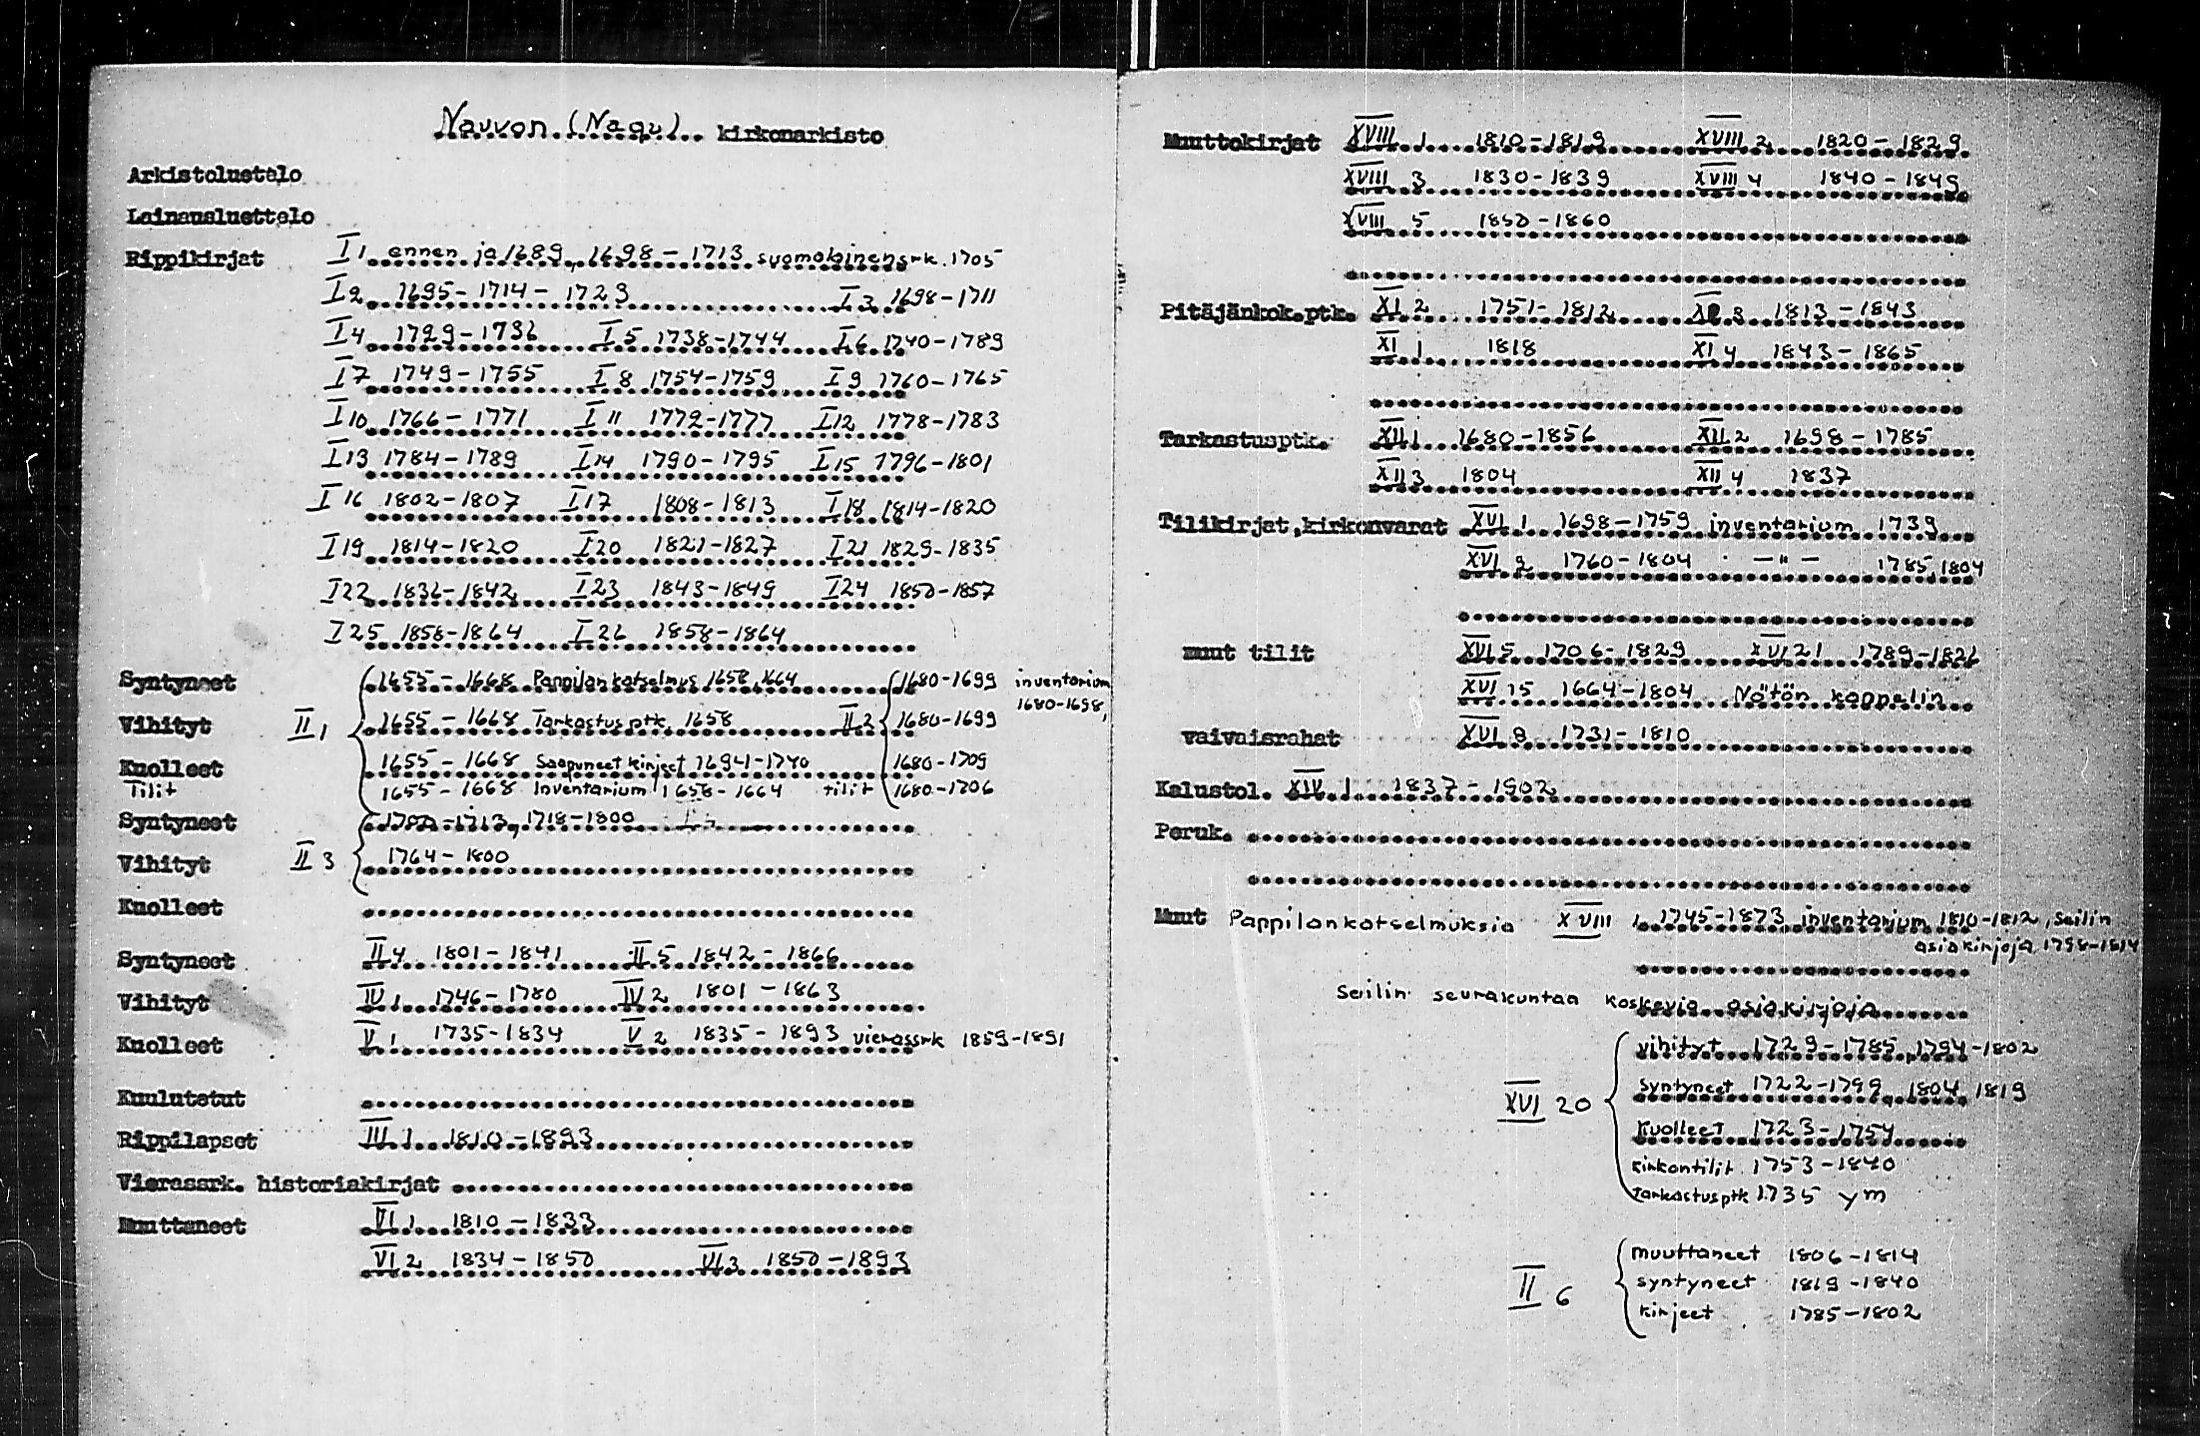 Nauvon (Nagu) kirkonarkisto
Arkistoluetelo
Lainausluettelo
Rippikirjat I 1 ennen ja 1689, 1698-1713 suomalainen srk. 1705
I 2 1695-1714-1723 I 3 1698-1711
I 4 1729-1736 I 5 1738-1744 I 6 1740-1789
I 7 1749-1755 I 8 1754-1759 I 9 1760-1765
I 10 1766-1771 I 11 1772-1777 I 12 1778-1783
I 13 1784-1789 I 14 1790-1795 I 15 1796-1801
I 16 1802-1807 I 17 1808-1813 I 18 1814-1820
I 19 1814-1820 I 20 1821-1827 I 21 1829-1835
I 22 1836-1842 I 23 1843-1849 I 24 1850-1857
I 25 1858-1864 I 26 1858-1864
Syntyneet 1655-1668 Pappilankatselmus 1658, 1664 1680-1699 inventarium
1680-1698,
Vihityt II 1 1655-1668 Tarkastusptk. 1658 II 2 1680-1699
Kuolleet 1655-1668 Saapuneet kirjeet 1694-1740 1680-1709
Tilit 1655-1668 Inventarium 1658-1664 tilit 1680-1706
Syntyneet 1702-1713, 1718-1800
Vihityt II 3 1764-1800
Kuolleet
Syntyneet II 4 1801-1841 II 5 1842-1866
Vihityt IV 1 1746-1780 IV 2 1801-1863
Kuolleet V 1 1735-1834 V 2 1835-1893 vierassrk 1859-1891
Kuulutetut
Rippilapset III 1 1810-1893
Vierassrk. historiakirjat
Muuttaneet VI 1 1810-1833
VI 2 1834-1850 VI 3 1850-1893
Muuttokirjat XVIII 1 1810-1819 XVIII 2 1820-1829
XVIII 3 1830-1839 XVIII 4 1840-1849
XVIII 5 1850-1860
Pitäjänkok.ptk. XI 2 1751-1812 XI 3 1813-1843
XI 1 1818 XI 4 1843-1865
Tarkastusptk. XII 1 1680-1856 XII 2 1698-1785
XII 3 1804 XII 4 1837
Tilikirjat, kirkonvarat XVI 1 1698-1759 inventarium 1739
XVI 2 1760-1804 -"- 1785, 1804
muut tilit XVI 5 1706-1829 XVI 21 1789-1826
XVI 15 1664-1804 Nötön kappelin
vaivaisrahat XVI 8 1731-1810
Kalustol. XIV 1 1837-1902
Peruk.
Muut Pappilankatselmuksia XVIII 1 1745-1873 inventarium 1810-1812, Seilin
asiakirjoja 1798-1814
Seilin seurakuntaa koskevia asiakirjoja
vihityt 1729-1785, 1794-1802
syntyneet 1722-1799, 1804, 1819
XVI 20
Kuolleet 1723-1754
kirkontilit 1753-1840
Tarkastusptk 1735 ym
muuttaneet 1806-1814
II 6 syntyneet 1819-1840
kirjeet 1785-1802